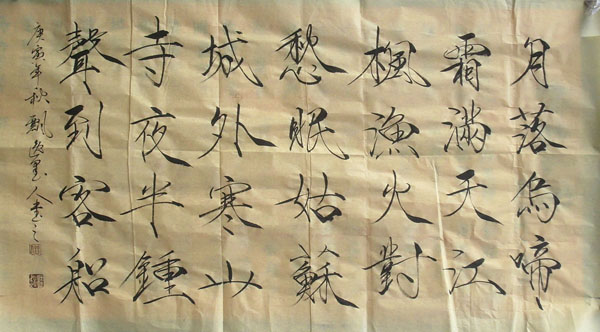 月落烏啼
霜滿天江
楓漁火對
愁眠姑蘇
城外寒山
寺夜半鍾
聲到客船
庚寅年秋飘逸墨人書之